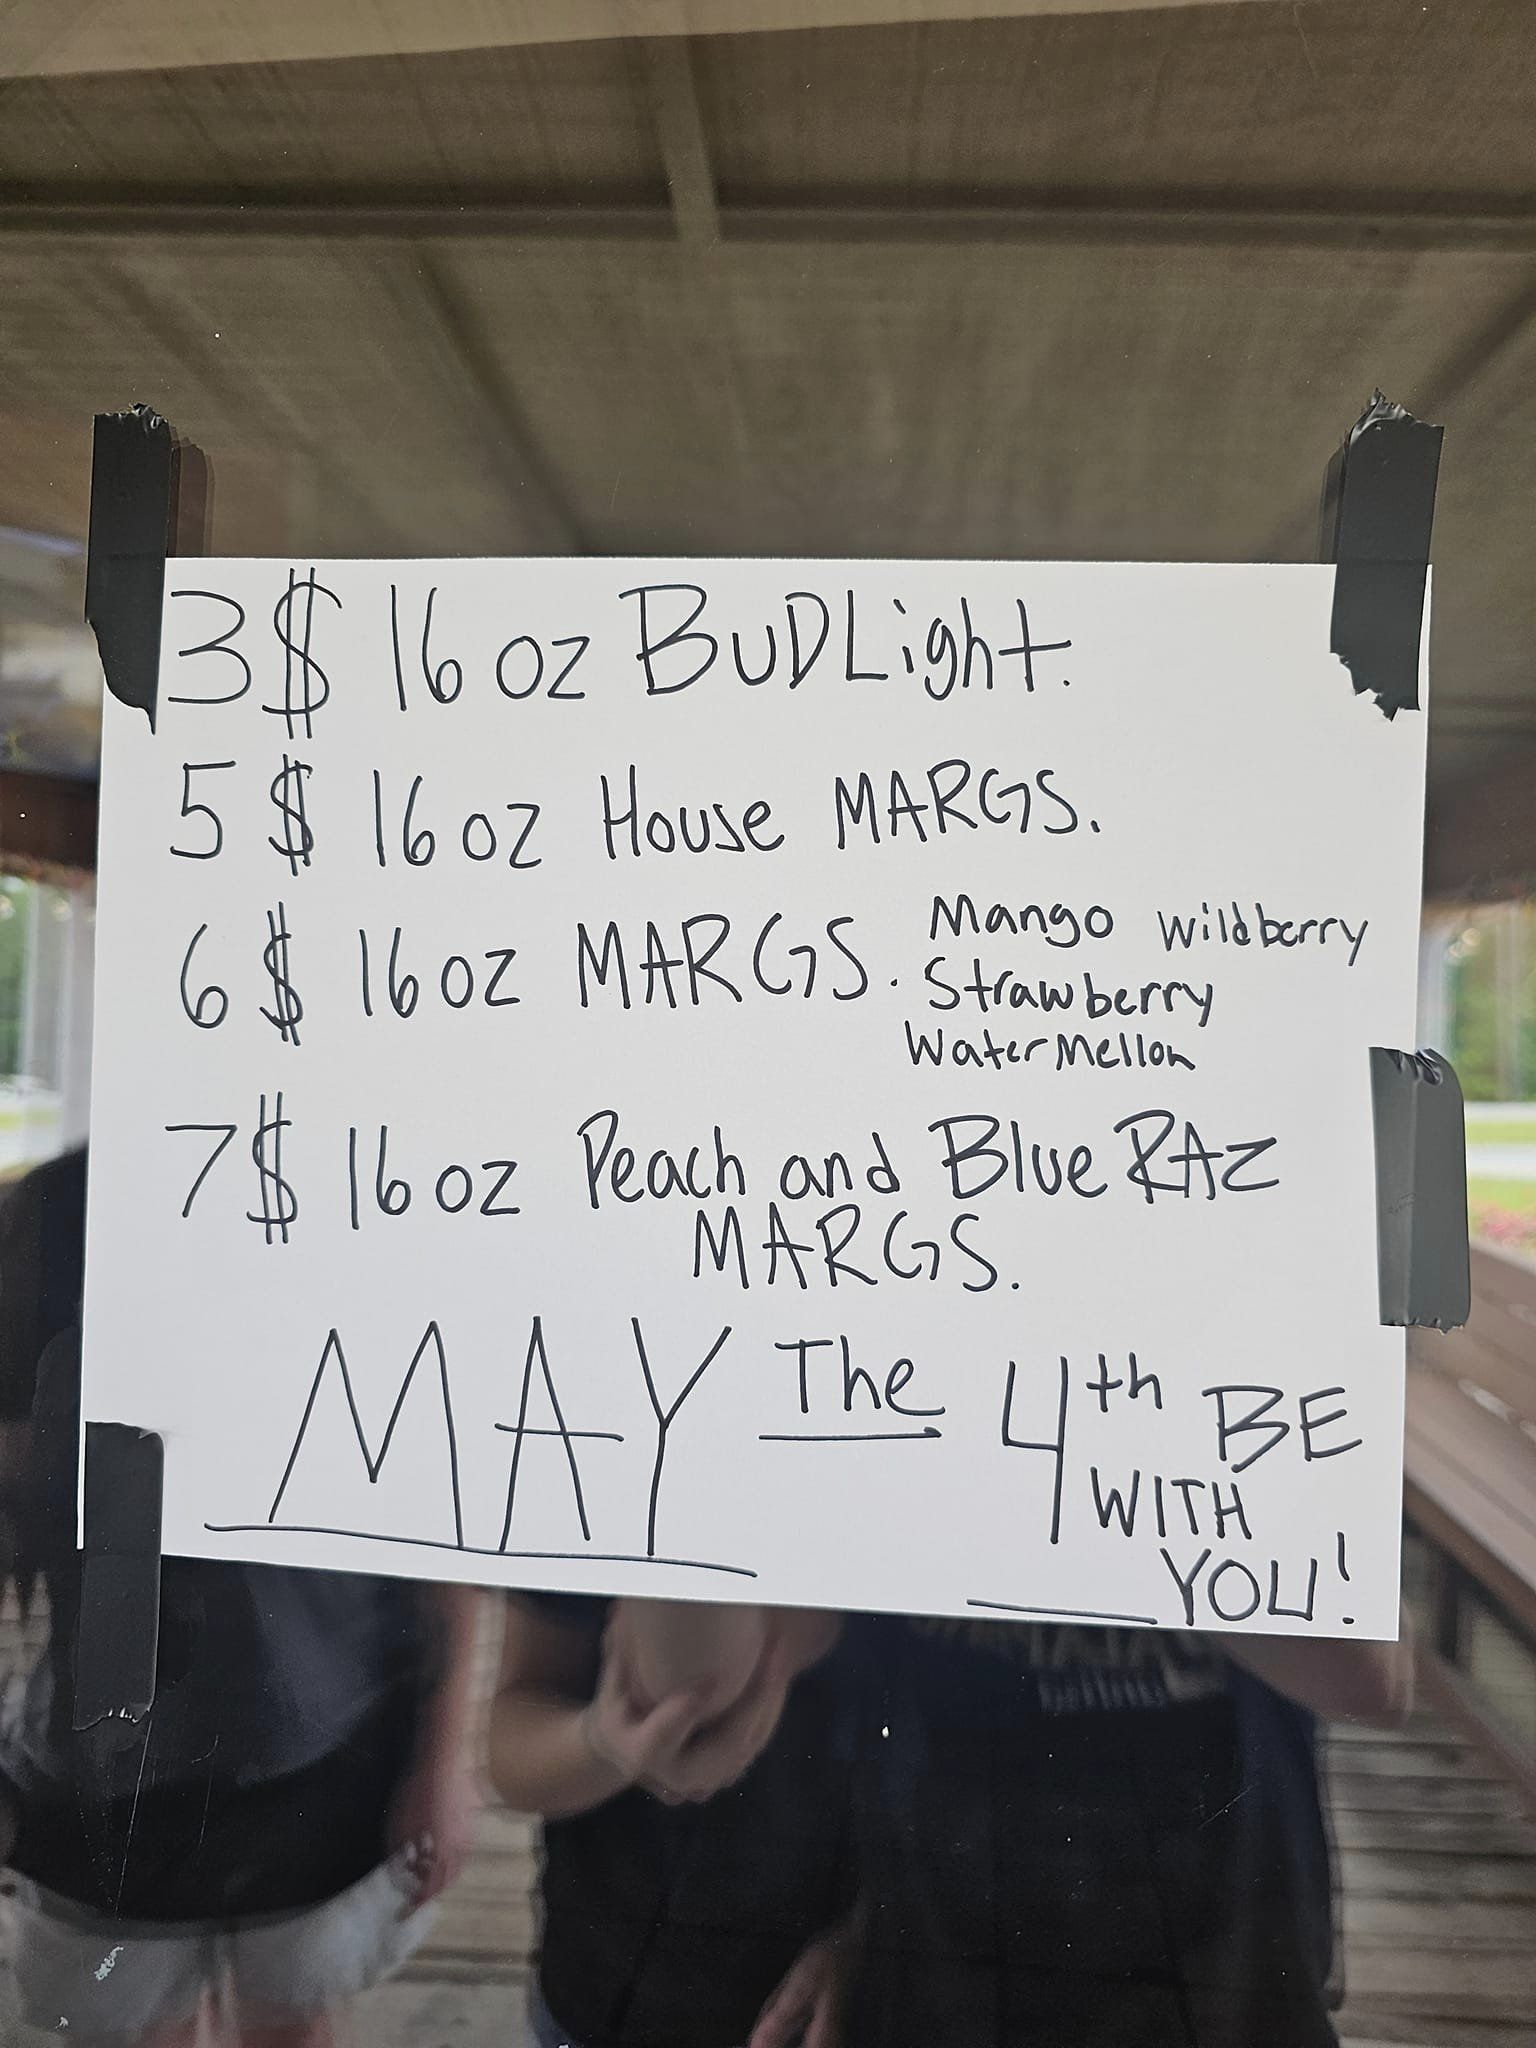 3$ 16 oz BUDLight.
5$ 16 oz House MARGS.
6$ 16 oz MARGS. Mango Wildberry
Strawberry
WaterMellon
7$ 16 oz Peach and Blue RAZ
MARGS.
MAY The 4th BE
WITH
YOU!